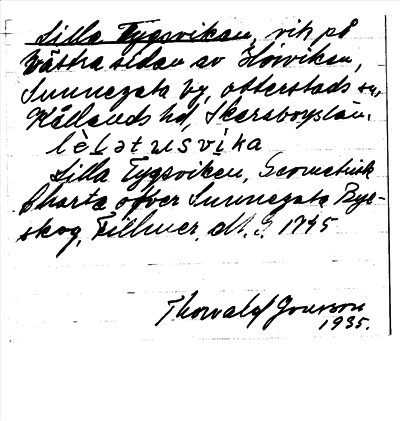 Lilla Tygsviken, vik på
Västra sidan av Höviken,
Sunnegata by, Otterstads sn,
Kållands hd, Skaraborgs län.
lèlətusvíka
Lilla Tygsviken, Geometrisk
Charta öfver Sunnegata Bys-
skog, Fillmer, dlt 3 1745
Thorvald
1935.